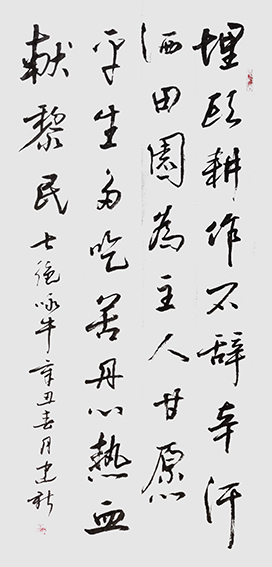 埋頭耕作不辭辛汗
洒田園為主人甘愿
平生多吃苦丹心熱血
献黎民七絕咏牛辛丑春月建新